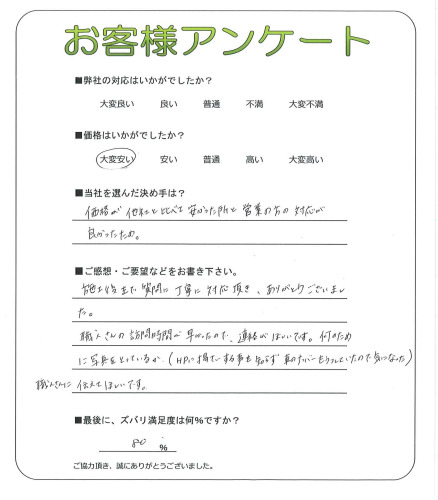 お客様アンケート
■弊社の対応はいかがでしたか？
大変良い 良い 普通 不満 大変不満
■価格はいかがでしたか？
大変安い 安い 普通 高い 大変高い
■当社を選んだ決め手は？
価格が他社と比べて安かった所と営業の方の対応が
良かったため。
■ご感想・ご要望などをお書き下さい。
施工後まで質問に丁寧に対応頂き、ありがとうございまし
た。
職人さんの訪問時間が早かったので、連絡がほしいです。何のため
に写真をとっているか(HPに揚げている事を知らず車のナンバーもうつしていたので気になった)
職人さんに伝えてほしいです。
■最後に、ズバリ満足度は何%ですか？
80 %
ご協力頂き、誠にありがとうございました。